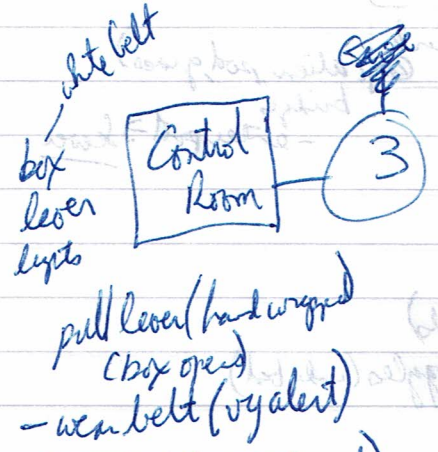 white belt
box
lever
Control
Room
3
pull lever (hand wrapped)
(box opens)
- wear belt